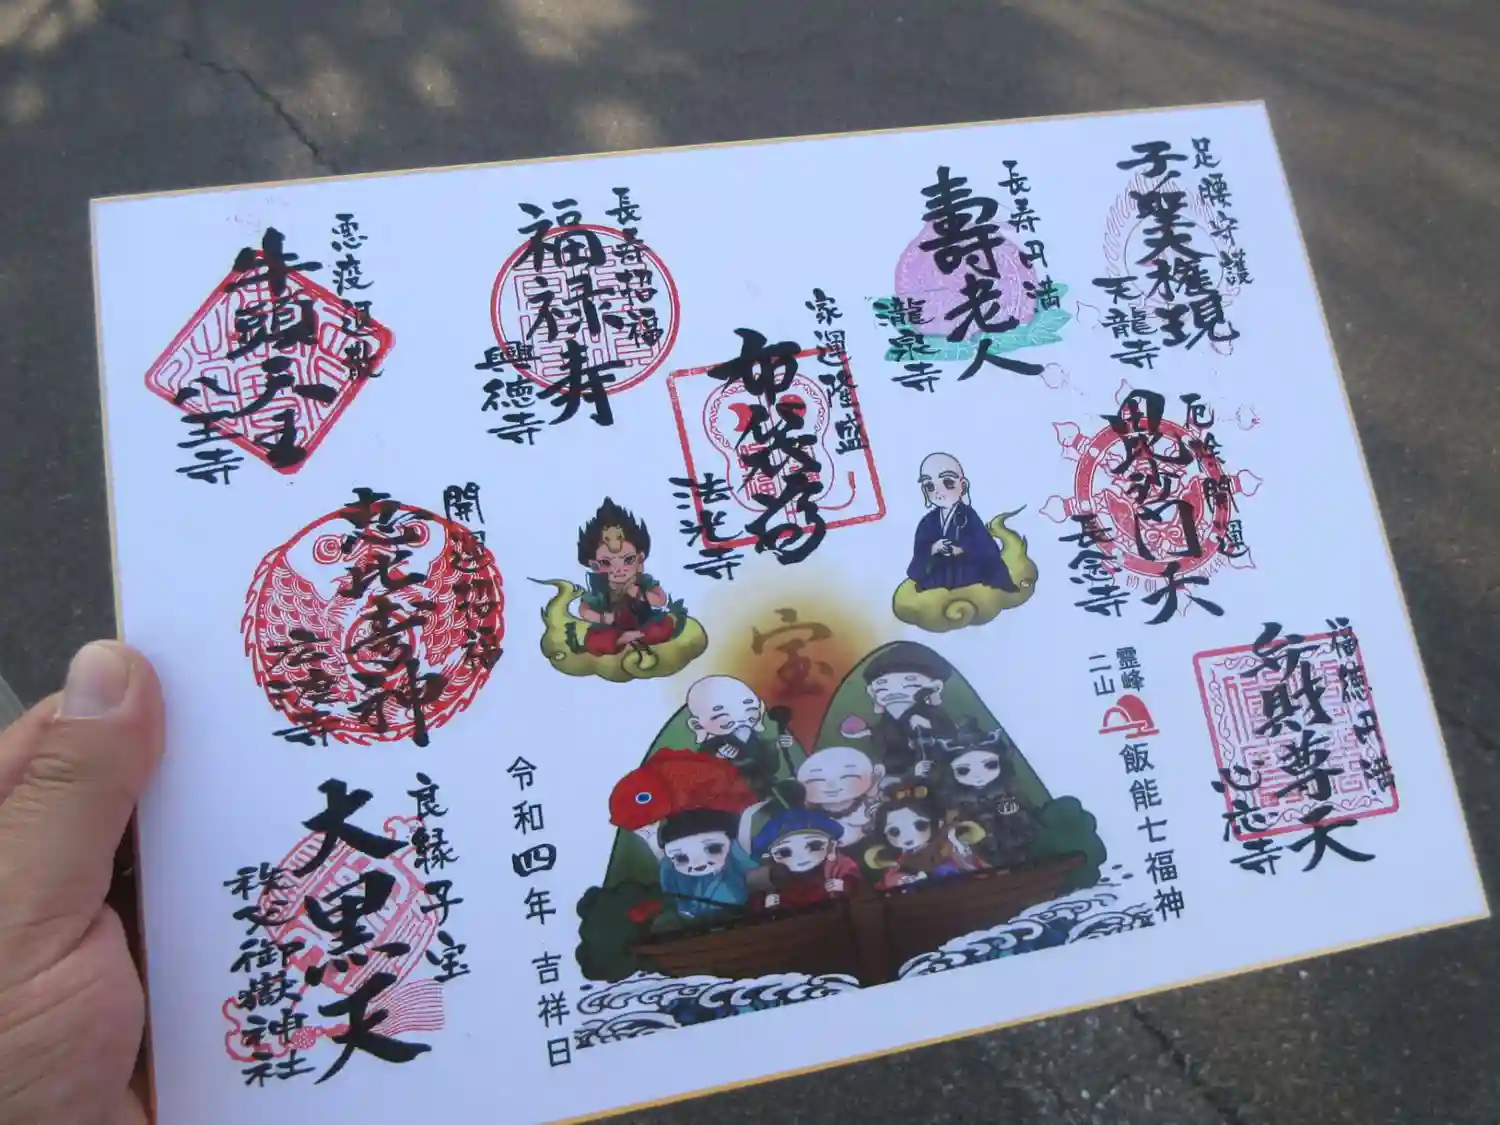 足腰守護
子ノ聖大権現
天龍寺
長寿円満
壽老人
瀧泉寺
家運隆盛
布袋尊
法光寺
長寿招福
福禄寿
興徳寺
悪疫退散
牛頭天王
八王寺
厄除開運
毘沙門天
長念寺
福徳円満
弁財尊天
心應寺
開運招福
恵比寿神
良縁子宝
大黒天
秩父御嶽神社
宝
霊峰
二山
飯能七福神
令和四年 吉祥日